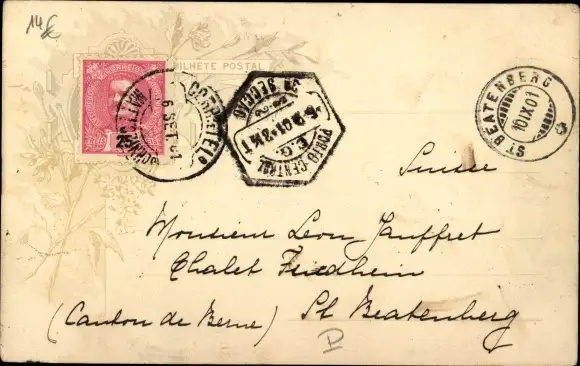 14€
BILHETE POSTAL
CORREIO
6 SET 01
2ª SECÇÃO
PORTO CENTRAL
ST BEATENBERG
10 IX 01
Suisse
Monsieur Leon Jauffret
Chalet Friedheim
(Canton de Berne) St Beatenberg
P